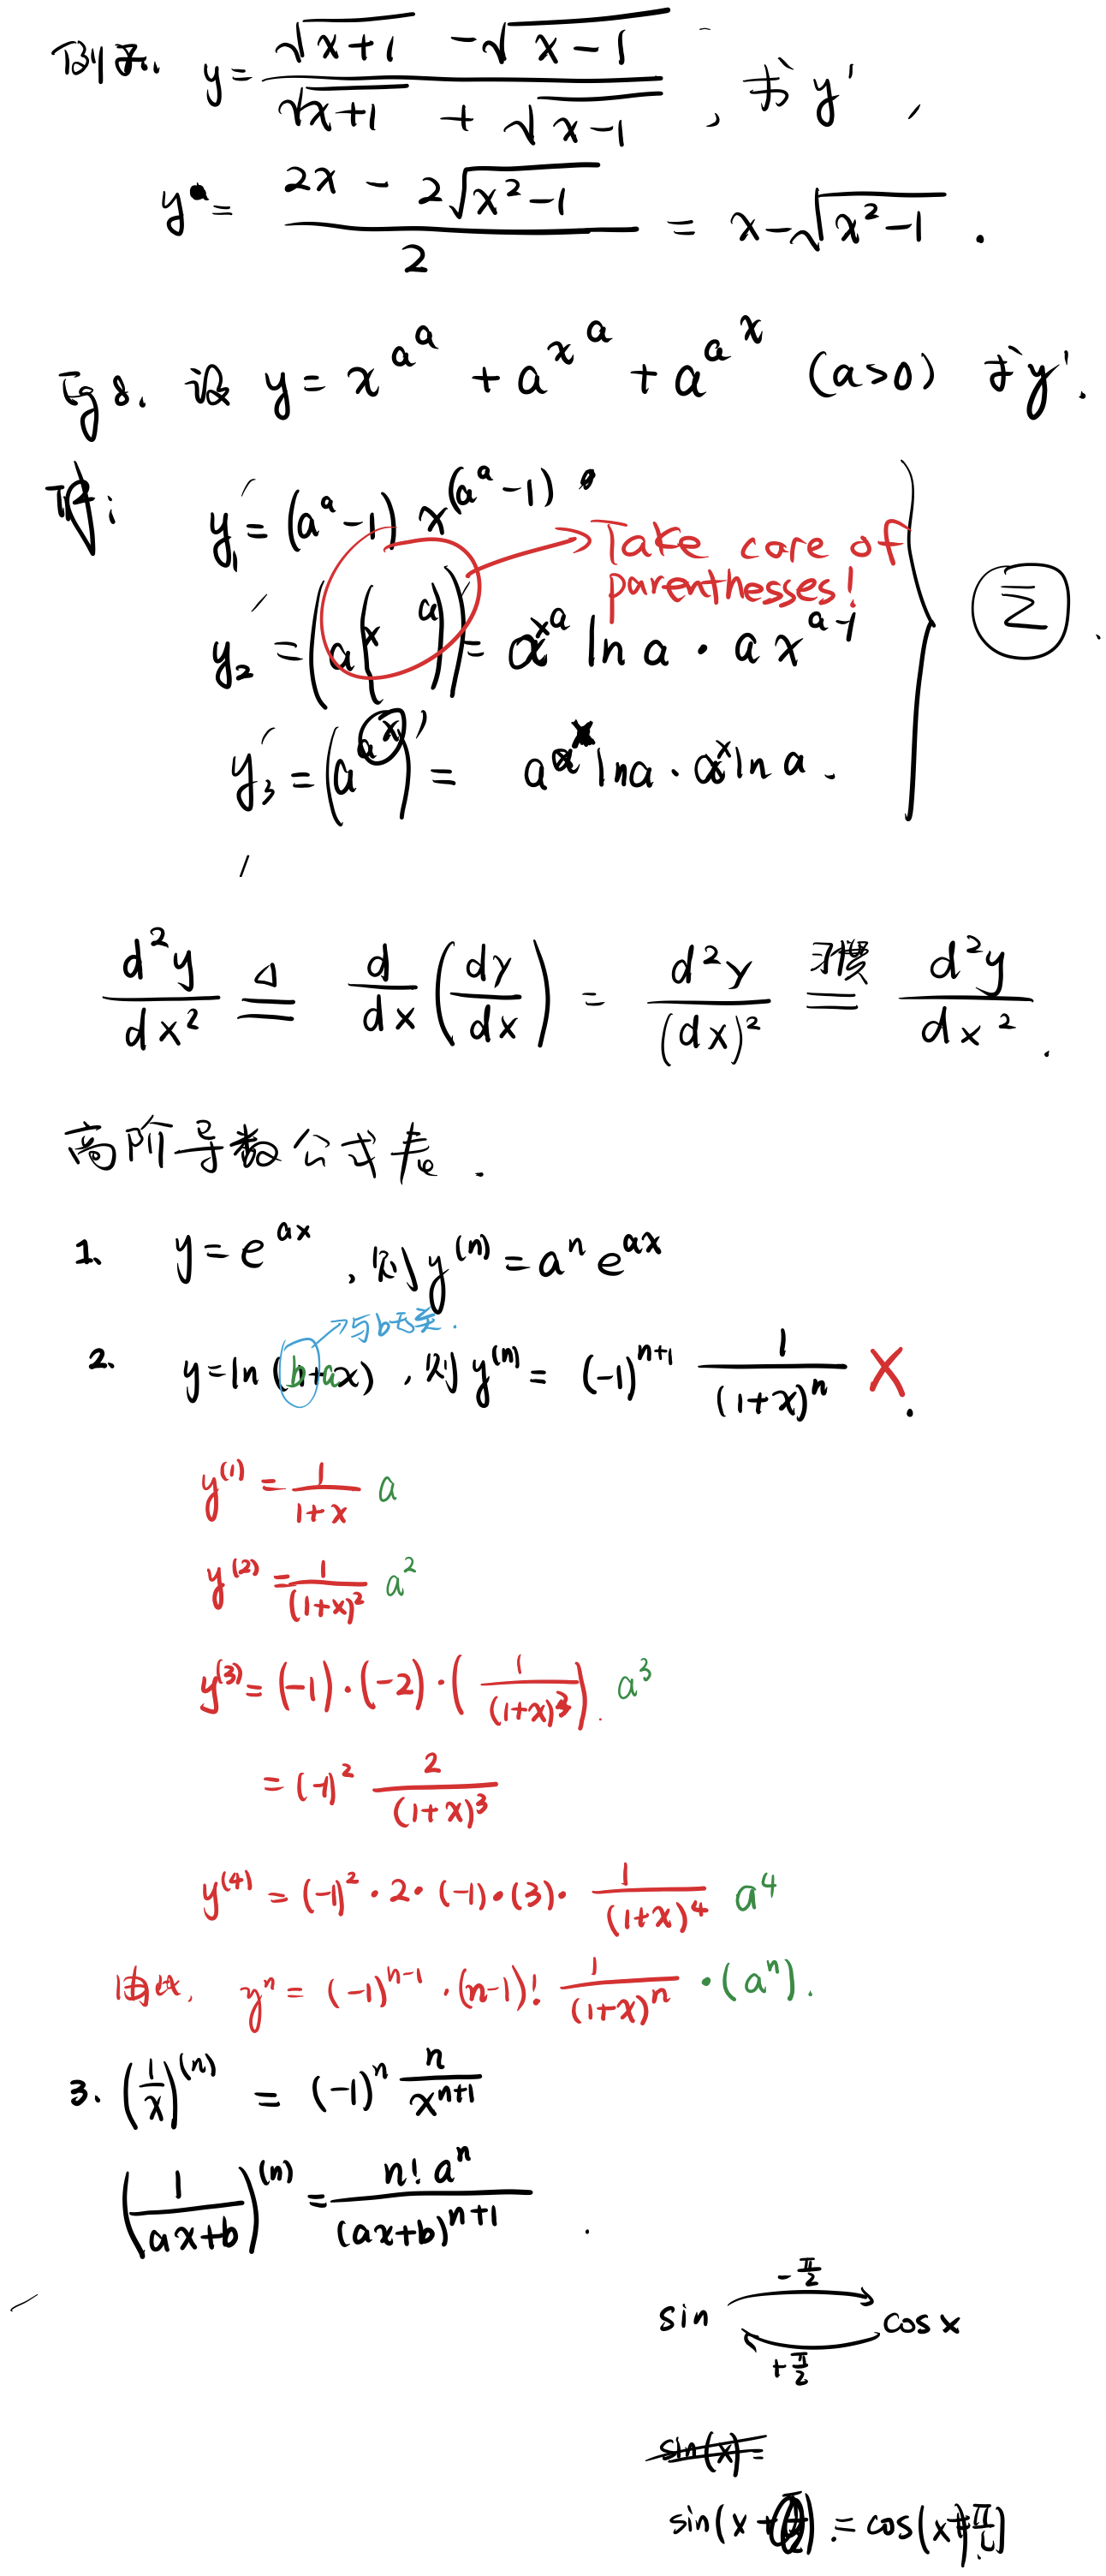 例子. y = (√(x+1) - √(x-1)) / (√(x+1) + √(x-1)), 求 y',
y = (2x - 2√(x²-1)) / 2 = x - √(x²-1).
Eg 8. 设 y = x^(a^a) + a^(x^a) + a^(a^x) (a>0) 求 y'.
解: y₁' = (a^a - 1) x^(a^a - 1)
Take care of
parenthesses!
y₂' = (a^(x^a))' = a^(x^a) ln a · a x^(a-1)
Σ.
y₃' = (a^(a^x))' = a^(a^x) ln a · a^x ln a.
d²y/dx² ≜ d/dx (dy/dx) = d²y/(dx)² 习惯 = d²y/dx².
高阶导数公式表.
1. y = e^(ax), 则 y^(n) = a^n e^(ax)
与b无关.
2. y = ln(b+ax), 则 y^(n) = (-1)^(n+1) 1/(1+x)^n X.
y^(1) = 1/(1+x) a
y^(2) = 1/(1+x)² a²
y^(3) = (-1)·(-2)·(1/(1+x)³). a³
= (-1)² 2/(1+x)³
y^(4) = (-1)²·2·(-1)·(3)· 1/(1+x)⁴ a⁴
由此, y^n = (-1)^(n-1)·(n-1)! 1/(1+x)^n ·(a^n).
3. (1/x)^(n) = (-1)^n n/x^(n+1)
(1/(ax+b))^(n) = n! a^n/(ax+b)^(n+1).
-π/2
sin cos x
+π/2
sin(x) =
sin(x + ) = cos(x